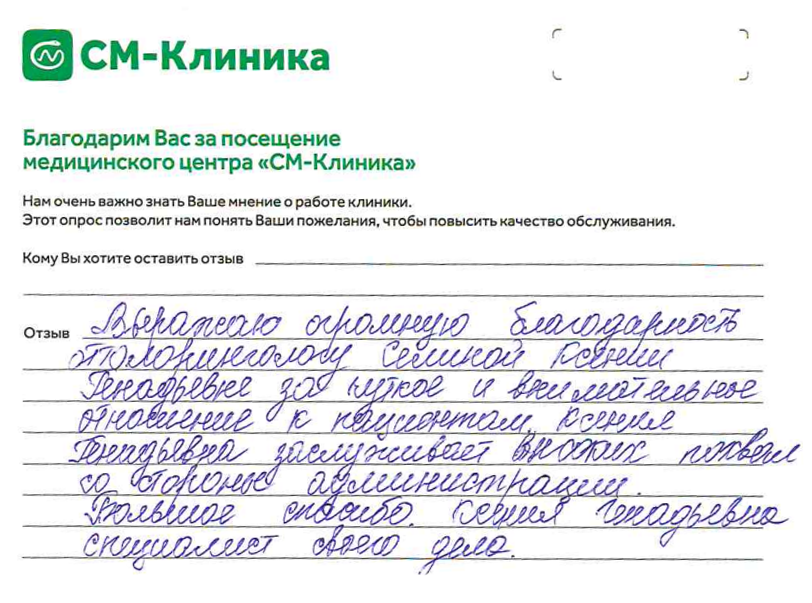 СМ-Клиника
Благодарим Вас за посещение
медицинского центра «СМ-Клиника»
Нам очень важно знать Ваше мнение о работе клиники.
Этот опрос позволит нам понять Ваши пожелания, чтобы повысить качество обслуживания.
Кому Вы хотите оставить отзыв
Отзыв Выражаю огромную благодарность
отоларингологу Семиной Ксении
Генадьевне за чуткое и внимательное
отношение к пациентам. Ксения
Генадьевна заслуживает похвал
со стороны администрации.
Большое спасибо. Ксения Генадьевна
специалист своего дела.